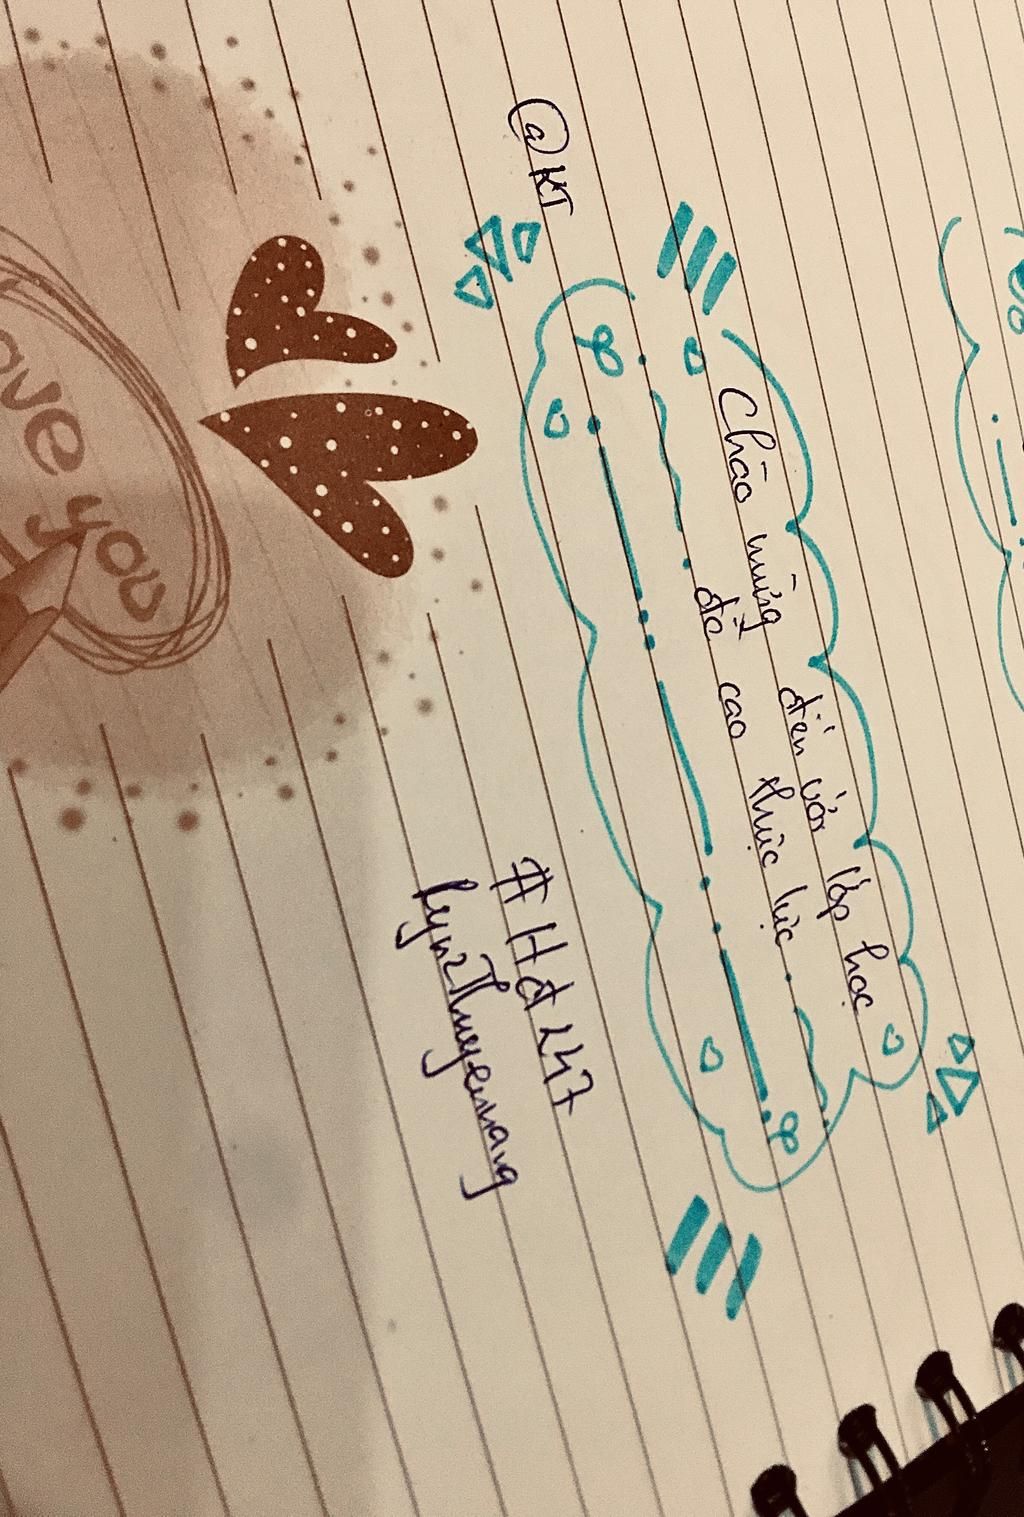 Chào mừng đến với lớp học
đề cao thực lực
@KT
#Hđ247
ove you